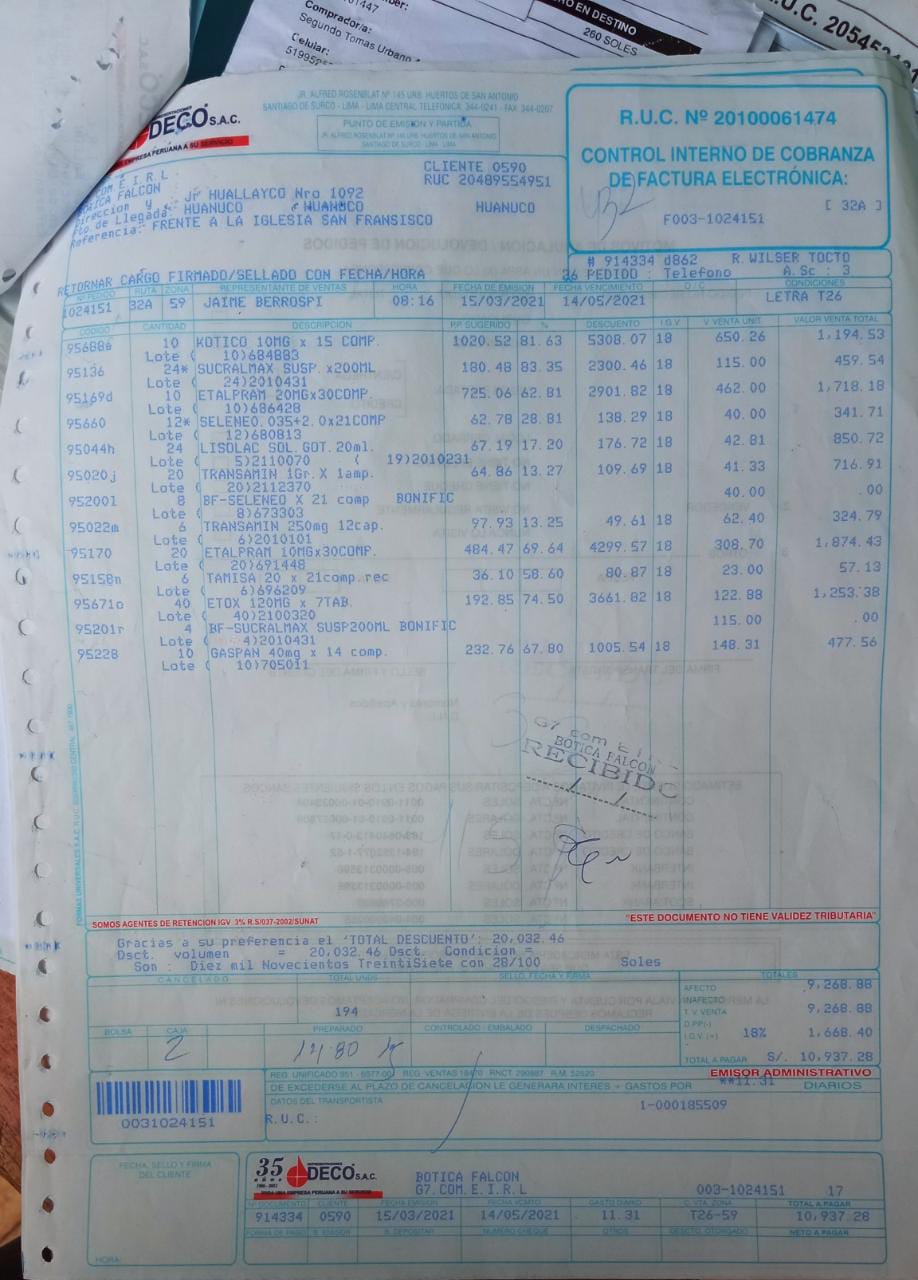 01447
Comprador/a:
Segundo Tomas Urbano
Celular:
O EN DESTINO
260 SOLES
U.C.
DECO S.A.C.
EMPRESA PERUANA A SU SERVICIO
JR. ALFRED ROSENBLAT Nº 145 URB. HUERTOS DE SAN ANTONIO
SANTIAGO DE SURCO - LIMA - LIMA CENTRAL TELEFONICA: 344-0241 - FAX 344-0207
PUNTO DE EMISION Y PARTIDA
JR. ALFRED ROSENBLAT Nº 145 URB. HUERTOS DE SAN ANTONIO
SANTIAGO DE SURCO LIMA LIMA
R.U.C. Nº 20100061474
CONTROL INTERNO DE COBRANZA
DE FACTURA ELECTRÓNICA:
[ 32A ]
F003-1024151
CLIENTE 0590
RUC 20489554951
COM E I.R L
BOTICA FALCON
Direccion y : Jr HUALLAYCO Nro 1092
Pto de Llegada: HUANUCO HUANUCO HUANUCO
Referencia: FRENTE A LA IGLESIA SAN FRANSISCO
# 914334 d862 R.WILSER TOCTO
26 PEDIDO : Telefono A.Sc : 3
RETORNAR CARGO FIRMADO/SELLADO CON FECHA/HORA
Nº PEDIDO RUTA ZONA REPRESENTANTE DE VENTAS HORA FECHA DE EMISION FECHA VENCIMIENTO O / C CONDICIONES
1024151 32A 59 JAIME BERROSPI 08:16 15/03/2021 14/05/2021 LETRA T26
CODIGO CANTIDAD DESCRIPCION P.P. SUGERIDO % DESCUENTO I.G.V V. VENTA UNIT. VALOR VENTA TOTAL
95688é 10 KOTICO 10MG x 15 COMP. 1020.52 81.63 5308.07 18 650.26 1,194.53
Lote ( 10)684883
95136 24* SUCRALMAX SUSP.x200ML 180.48 83.35 2300.46 18 115.00 459.54
Lote ( 24)2010431
95169d 10 ETALPRAM 20MGx30COMP. 725.06 62.81 2901.82 18 462.00 1,718.18
Lote ( 10)686428
95660 12* SELENEO.035+2.0x21COMP 62.78 28.81 138.29 18 40.00 341.71
Lote ( 12)680813
95044h 24 LISOLAC SOL.GOT.20ml. 67.19 17.20 176.72 18 42.81 850.72
Lote ( 5)2110070 ( 19)2010231
95020j 20 TRANSAMIN 1Gr.X 1amp. 64.86 13.27 109.69 18 41.33 716.91
Lote ( 20)2112370
95200l 8 BF-SELENEO X 21 comp BONIFIC 40.00 .00
Lote ( 8)673303
95022m 6 TRANSAMIN 250mg 12cap. 97.93 13.25 49.61 18 62.40 324.79
Lote ( 6)2010101
95170 20 ETALPRAM 10MGx30COMP. 484.47 69.64 4299.57 18 308.70 1,874.43
Lote ( 20)691448
95158n 6 TAMISA 20 x 21comp.rec 36.10 58.60 80.87 18 23.00 57.13
Lote ( 6)696209
95671o 40 ETOX 120MG x 7TAB. 192.85 74.50 3661.82 18 122.88 1,253.38
Lote ( 40)2100320
95201r 4 BF-SUCRALMAX SUSP200ML BONIFIC 115.00 .00
Lote ( 4)2010431
95228 10 GASPAN 40mg x 14 comp. 232.76 67.80 1005.54 18 148.31 477.56
Lote ( 10)705011
G7 com E I
BOTICA FALCON
RECIBIDO
SOMOS AGENTES DE RETENCION IGV. 3% R.S/037-2002/SUNAT
"ESTE DOCUMENTO NO TIENE VALIDEZ TRIBUTARIA"
Gracias a su preferencia el 'TOTAL DESCUENTO': 20,032.46
Dsct. volumen = 20,032.46 Dsct. Condicion =
Son : Diez mil Novecientos TreintiSiete con 28/100 Soles
CANCELADO TOTAL UNDS. SELLO, FECHA Y FIRMA TOTALES
194
AFECTO 9,268.88
INAFECTO
T. V. VENTA 9,268.88
D.P.P(-)
I.G.V. (+) 18% 1,668.40
TOTAL A PAGAR S/. 10,937.28
BOLSA CAJA PREPARADO CONTROLADO - EMBALADO DESPACHADO
2
REG. UNIFICADO 951 - 6577-00 REG. VENTAS 18470 RNCT. 290887 R.M. 52520
EMISOR ADMINISTRATIVO
DE EXCEDERSE AL PLAZO DE CANCELACION LE GENERARA INTERES + GASTOS POR **11.31 DIARIOS
DATOS DEL TRANSPORTISTA
1-000185509
R.U.C.:
0031024151
FECHA, SELLO Y FIRMA
DEL CLIENTE
HORA:
35 años
DECO S.A.C.
BOTICA FALCON
G7.COM.E.I.R.L
003-1024151 17
Nº DOCUMENTO CLIENTE FECHA EMISION FECHA VCMTO GASTO DIARIO VTA. ZONA TOTAL A PAGAR
914334 0590 15/03/2021 14/05/2021 11.31 T26-59 10,937.28
FORMA DE PAGO B. EMISOR B. DEPOSITAR NUMERO CHEQUE OTROS DESCTO. OTORGADO NETO A PAGAR